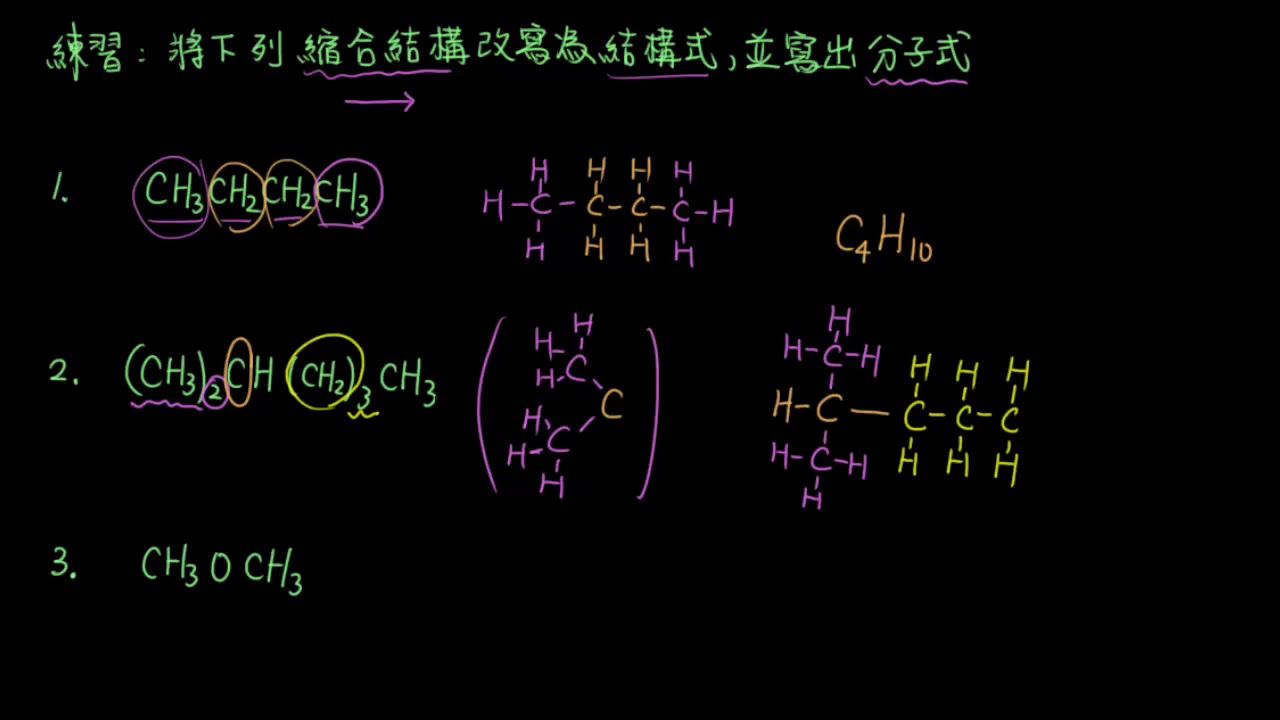 練習：將下列縮合結構改寫為結構式，並寫出分子式
1. CH3CH2CH2CH3
H H H H
H-C-C-C-C-H
H H H H
C4H10
2. (CH3)2CH(CH2)3CH3
H
H C
H
C
H
H-C
H
H
H-C-H H H H
H-C-C-C-C
H-C-H H H H
H
3. CH3OCH3